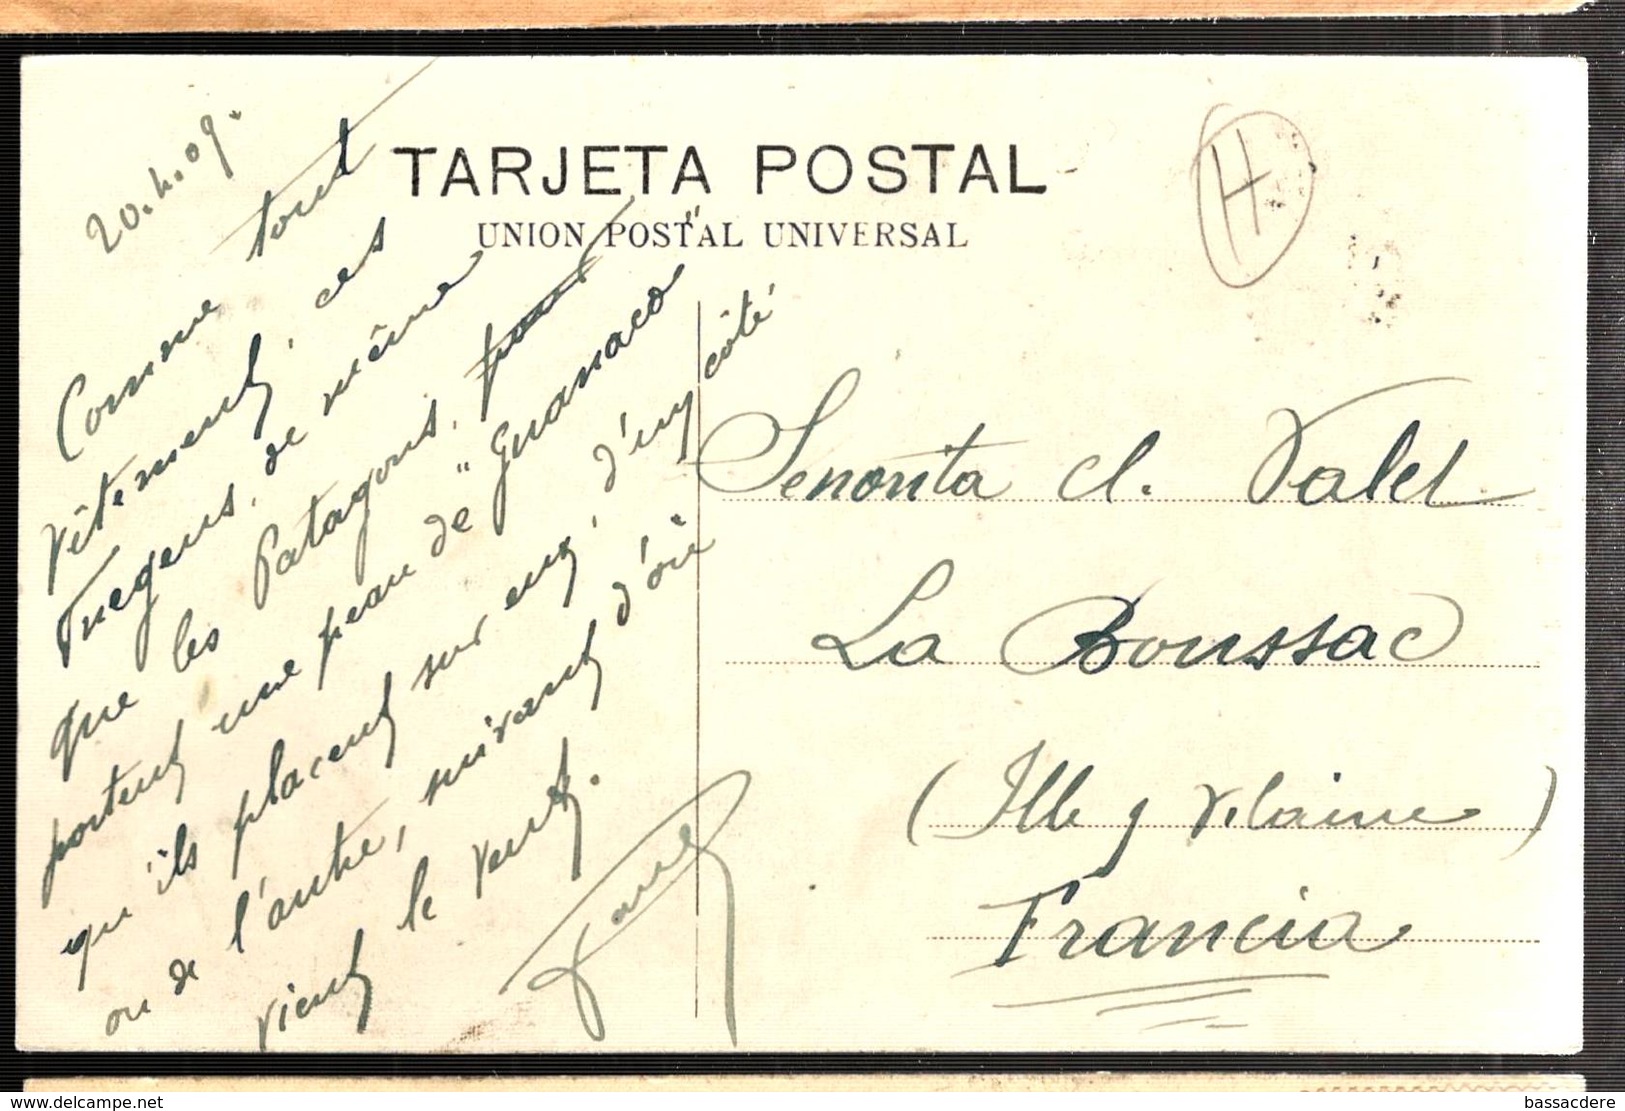 20.4.09.
TARJETA POSTAL
UNION POSTAL UNIVERSAL
H
Comme tout
vêtement, ces
Fuegens, de même
que les Patagons, pour
portent une peau de "Guanaco"
qu'ils placent sur eux, d'un côté
ou de l'autre, suivant d'où
vient le vent.
Senorita Cl. Valet
La Boussac
(Ille y Vilaine)
Francia
bassacdere